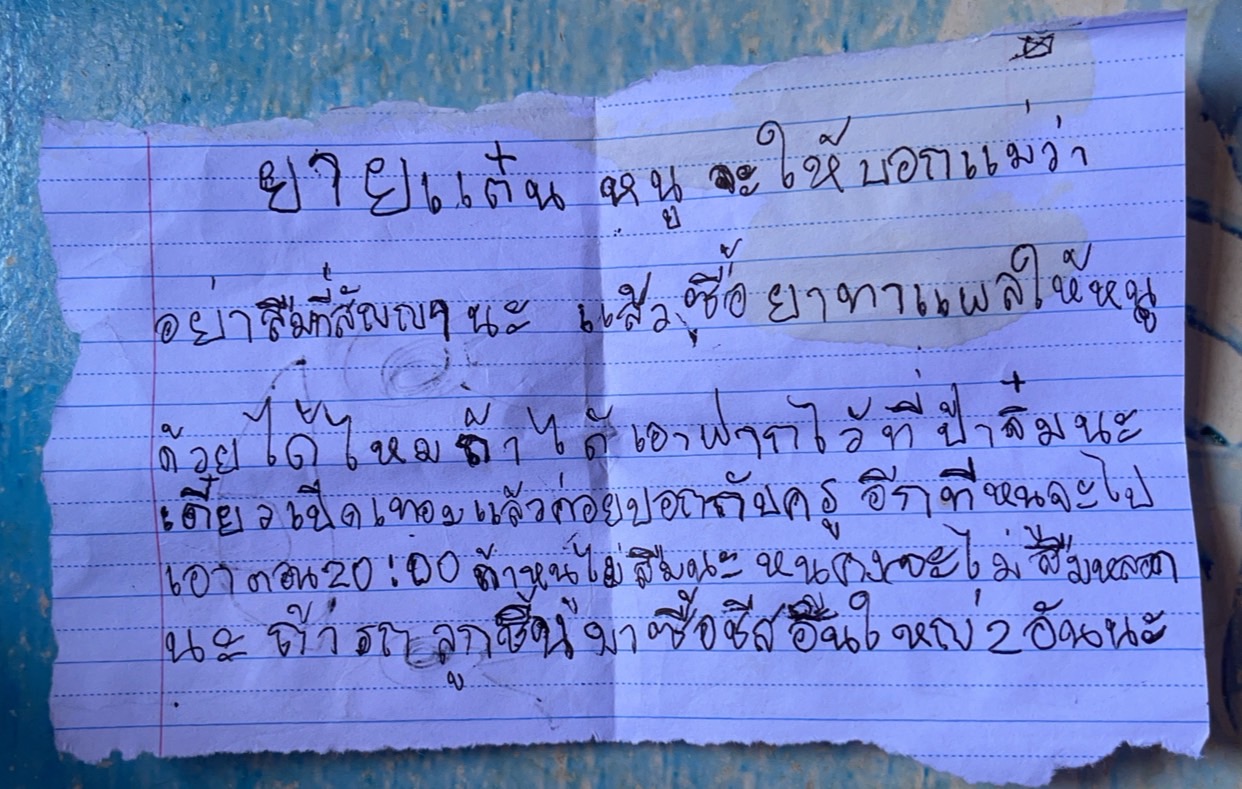 ยายแต๋น หนู จะให้บอกแม่ว่า
อย่าลืมที่สัญญๆ นะ แล้ว ซื้อ ยาทาแผลให้หนู
ด้วยได้ไหม ถ้าได้ เอาฝากไว้ที่ ป้าส๋มนะ
เดี๋ยวเปิดเทอมแล้วค่อยบอกกับครู อีกทีหนจะไป
เอาตอน 20:00 ถ้าหนูไม่ลืมนะ หนูคงจะไม่ ลืมหลอก
นะ ถ้า รถ ลูกชิ้น มาซื้อชีสอันใหญ่ 2 อันนะ